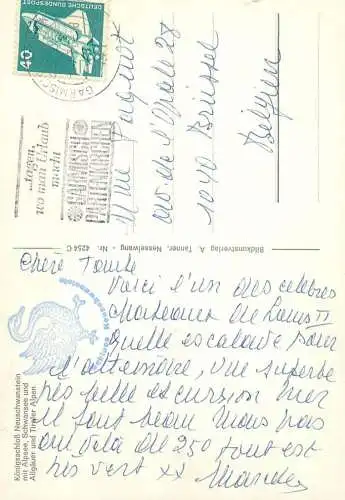 DEUTSCHE BUNDESPOST
40
GARMISCH
...tagen,
wo man Urlaub
macht
GARMISCH
PARTENKIRCHEN
av. de l'Opale 28
1040 Brüssel
Belgien
Bildkunstverlag A. Tanner, Nesselwang - Nr. 4254 C
Königsschloß Neuschwanstein
mit Alpsee, Schwansee und
Allgäuer und Tiroler Alpen
Chère
Voici l'un des célèbres
châteaux de Louis II
quelle escalade pour
l'atteindre, vue superbe
très belle excursion hier
il fait beau mais pas
au delà de 25° tout est
très vert xx